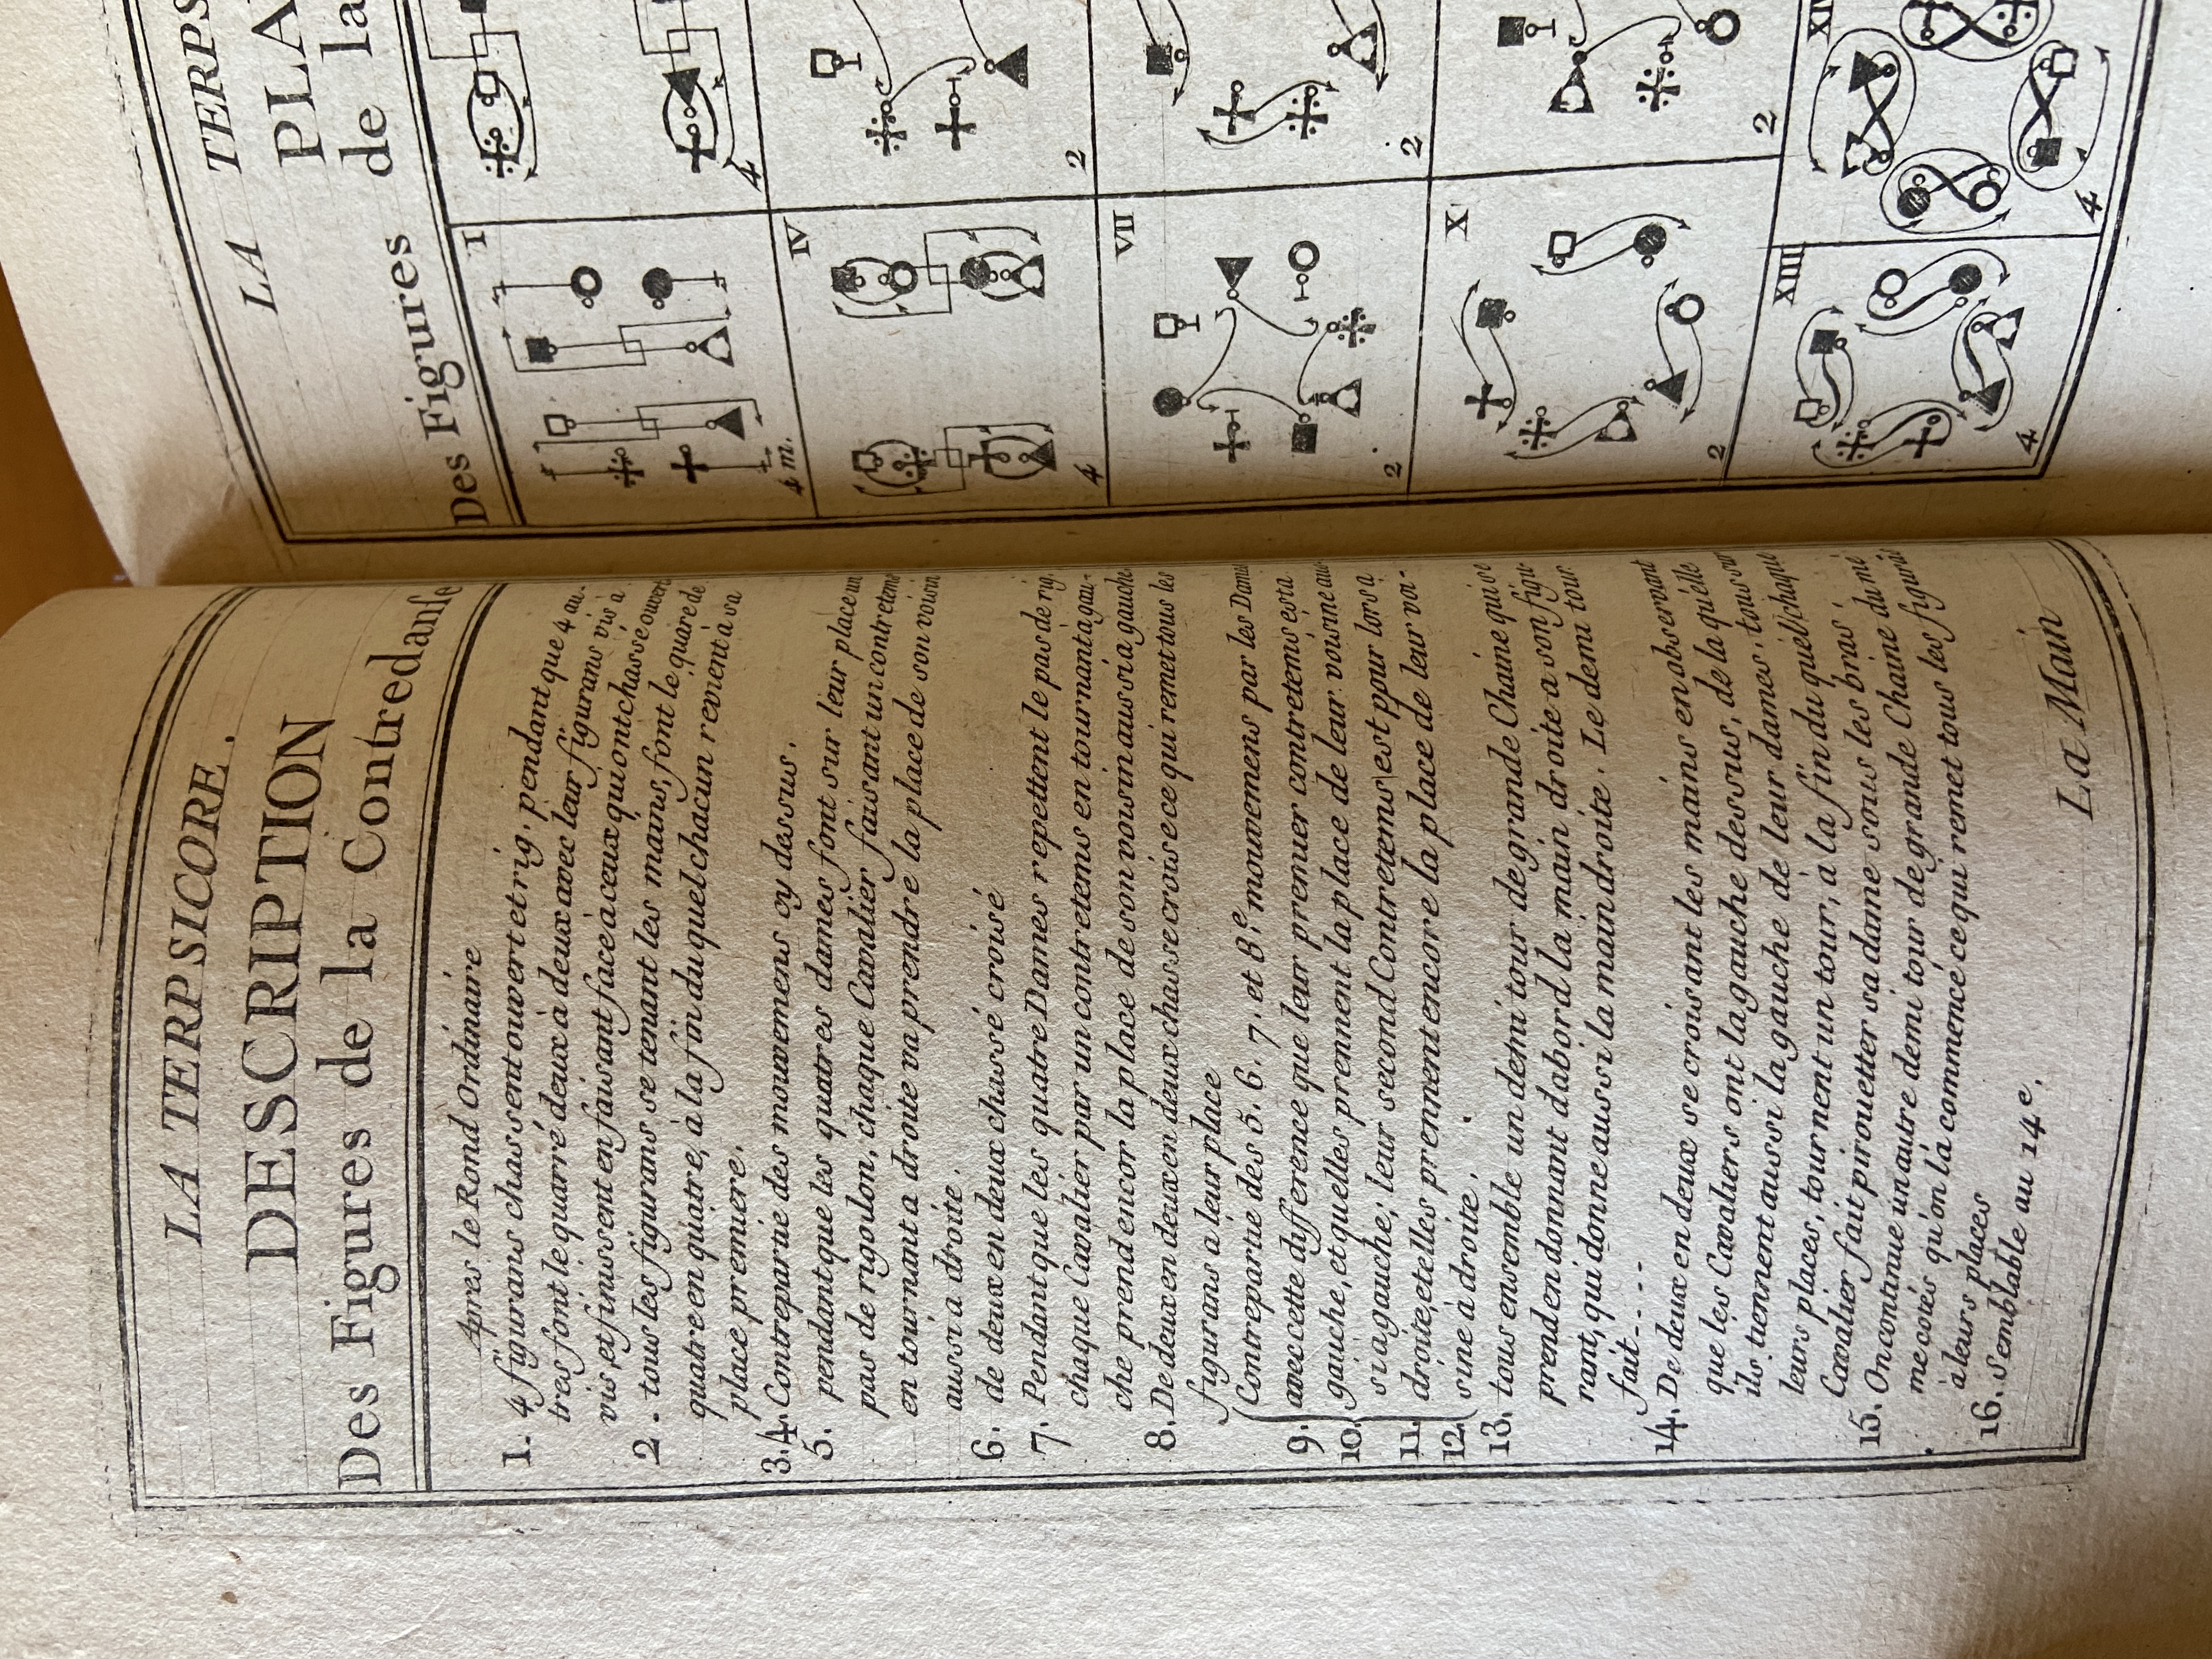 LA TERPSICORE.
DESCRIPTION
Des Figures de la Contredanse
Apres le Rond Ordinaire
1. 4 figurans chassent ouvert et rig. pendant que 4 au-
tres font le quarré deux à deux avec leur figurans vis à
vis, et finissent en faisant face à ceux qui ont chassé ouvert
2. tous les figurans se tenant les mains, font le quaré de
quatre en quatre, à la fin du quel chacun revient à sa
place premiere.
3.4. Contrepartie des mouvemens cy dessus.
5. pendant que les quatres dames font sur leur place un
pas de rigodon, chaque Cavalier faisant un contretems
en tournant a droite va prendre la place de son voisin
aussi a droite.
6. de deux en deux chassé croisé
7. Pendant que les quatre Dames repettent le pas de rig.
chaque Cavalier par un contretems en tournant a gau-
che prend encor la place de son voisin aussi a gauche
8. De deux en deux en deux chasse croise ce qui remet tous les
figurans a leur place
Contrepartie des 5. 6. 7. et 8.e mouvemens par les Dames
9. avec cette difference que leur premier contretems est a
10. gauche, et quelles prennent la place de leur voisine aus-
si a gauche; leur second Contretems est pour lors a
11. droite, et elles prennent encore la place de leur voi-
12. sine à droite.
13. tous ensemble un demi tour de grande Chaine qui se
prend en donnant dabord la main droite a son figu-
rant, qui donne aussi la main droite. Le demi tour
fait....
14. De deux en deux se croisant les mains en observant
que les Cavaliers ont la gauche dessus, de la quelle
ils tiennent aussi la gauche de leur dames, tous sur
leurs places, tournent un tour, à la fin du quel chaque
Cavalier fait pirouetter sa dame sous les bras
15. On continue un autre demi tour de grande Chaine du mê
me cotés qu'on l'à commencé ce qui remet tous les figurās
à leurs places
16. Semblable au 14e.
La Main
LA TERPS
PLA
Des Figures de la
I
4 m.
4
IV
4
2
VII
2
2
X
2
2
XIII
4
XI
4